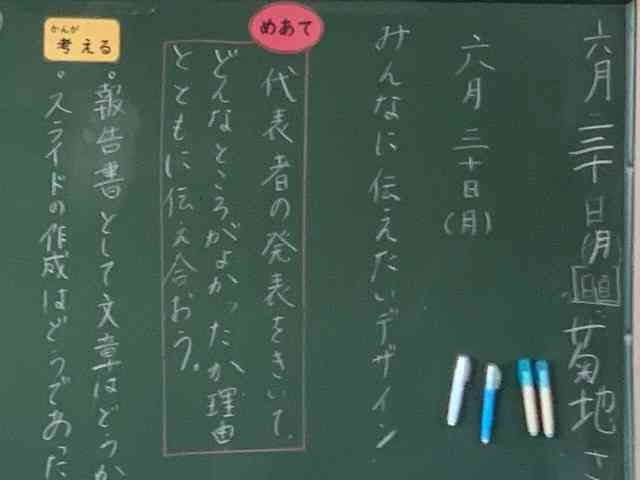 六月三十日(月)
日直
菊地さ
六月三十日(月)
みんなに伝えたいデザイン
めあて
代表者の発表をきいて、
どんなところがよかったか理由
とともに伝え合おう。
かんが
考える
・報告書として文章はどうか
・スライドの作成はどうであった